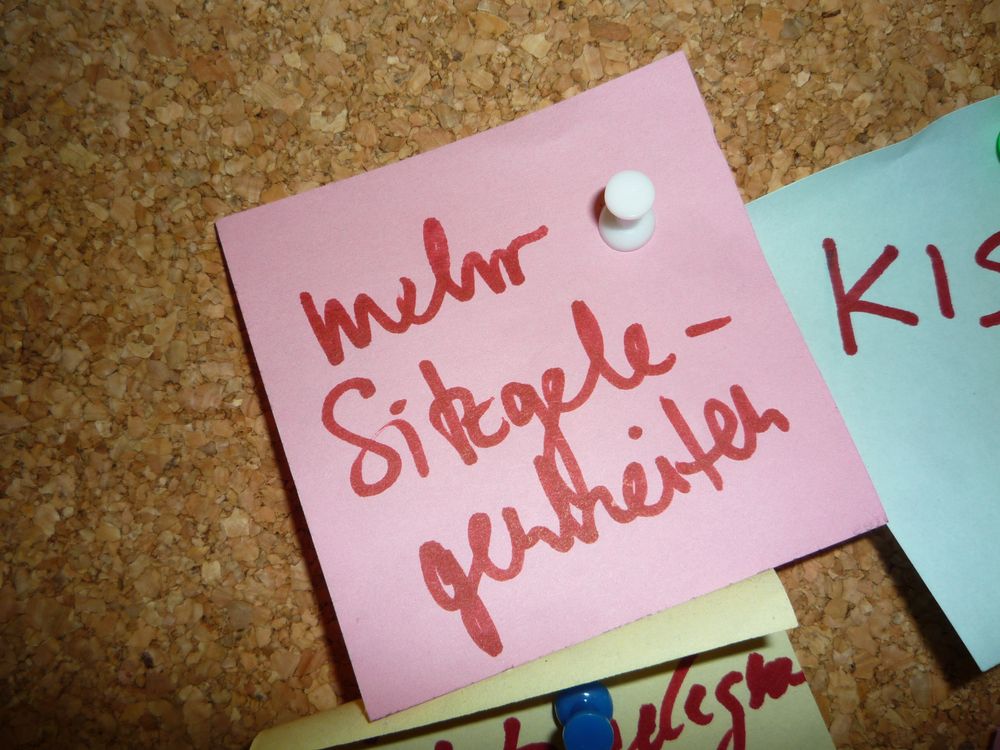 mehr
Sitzgele-
genheiten
KIS